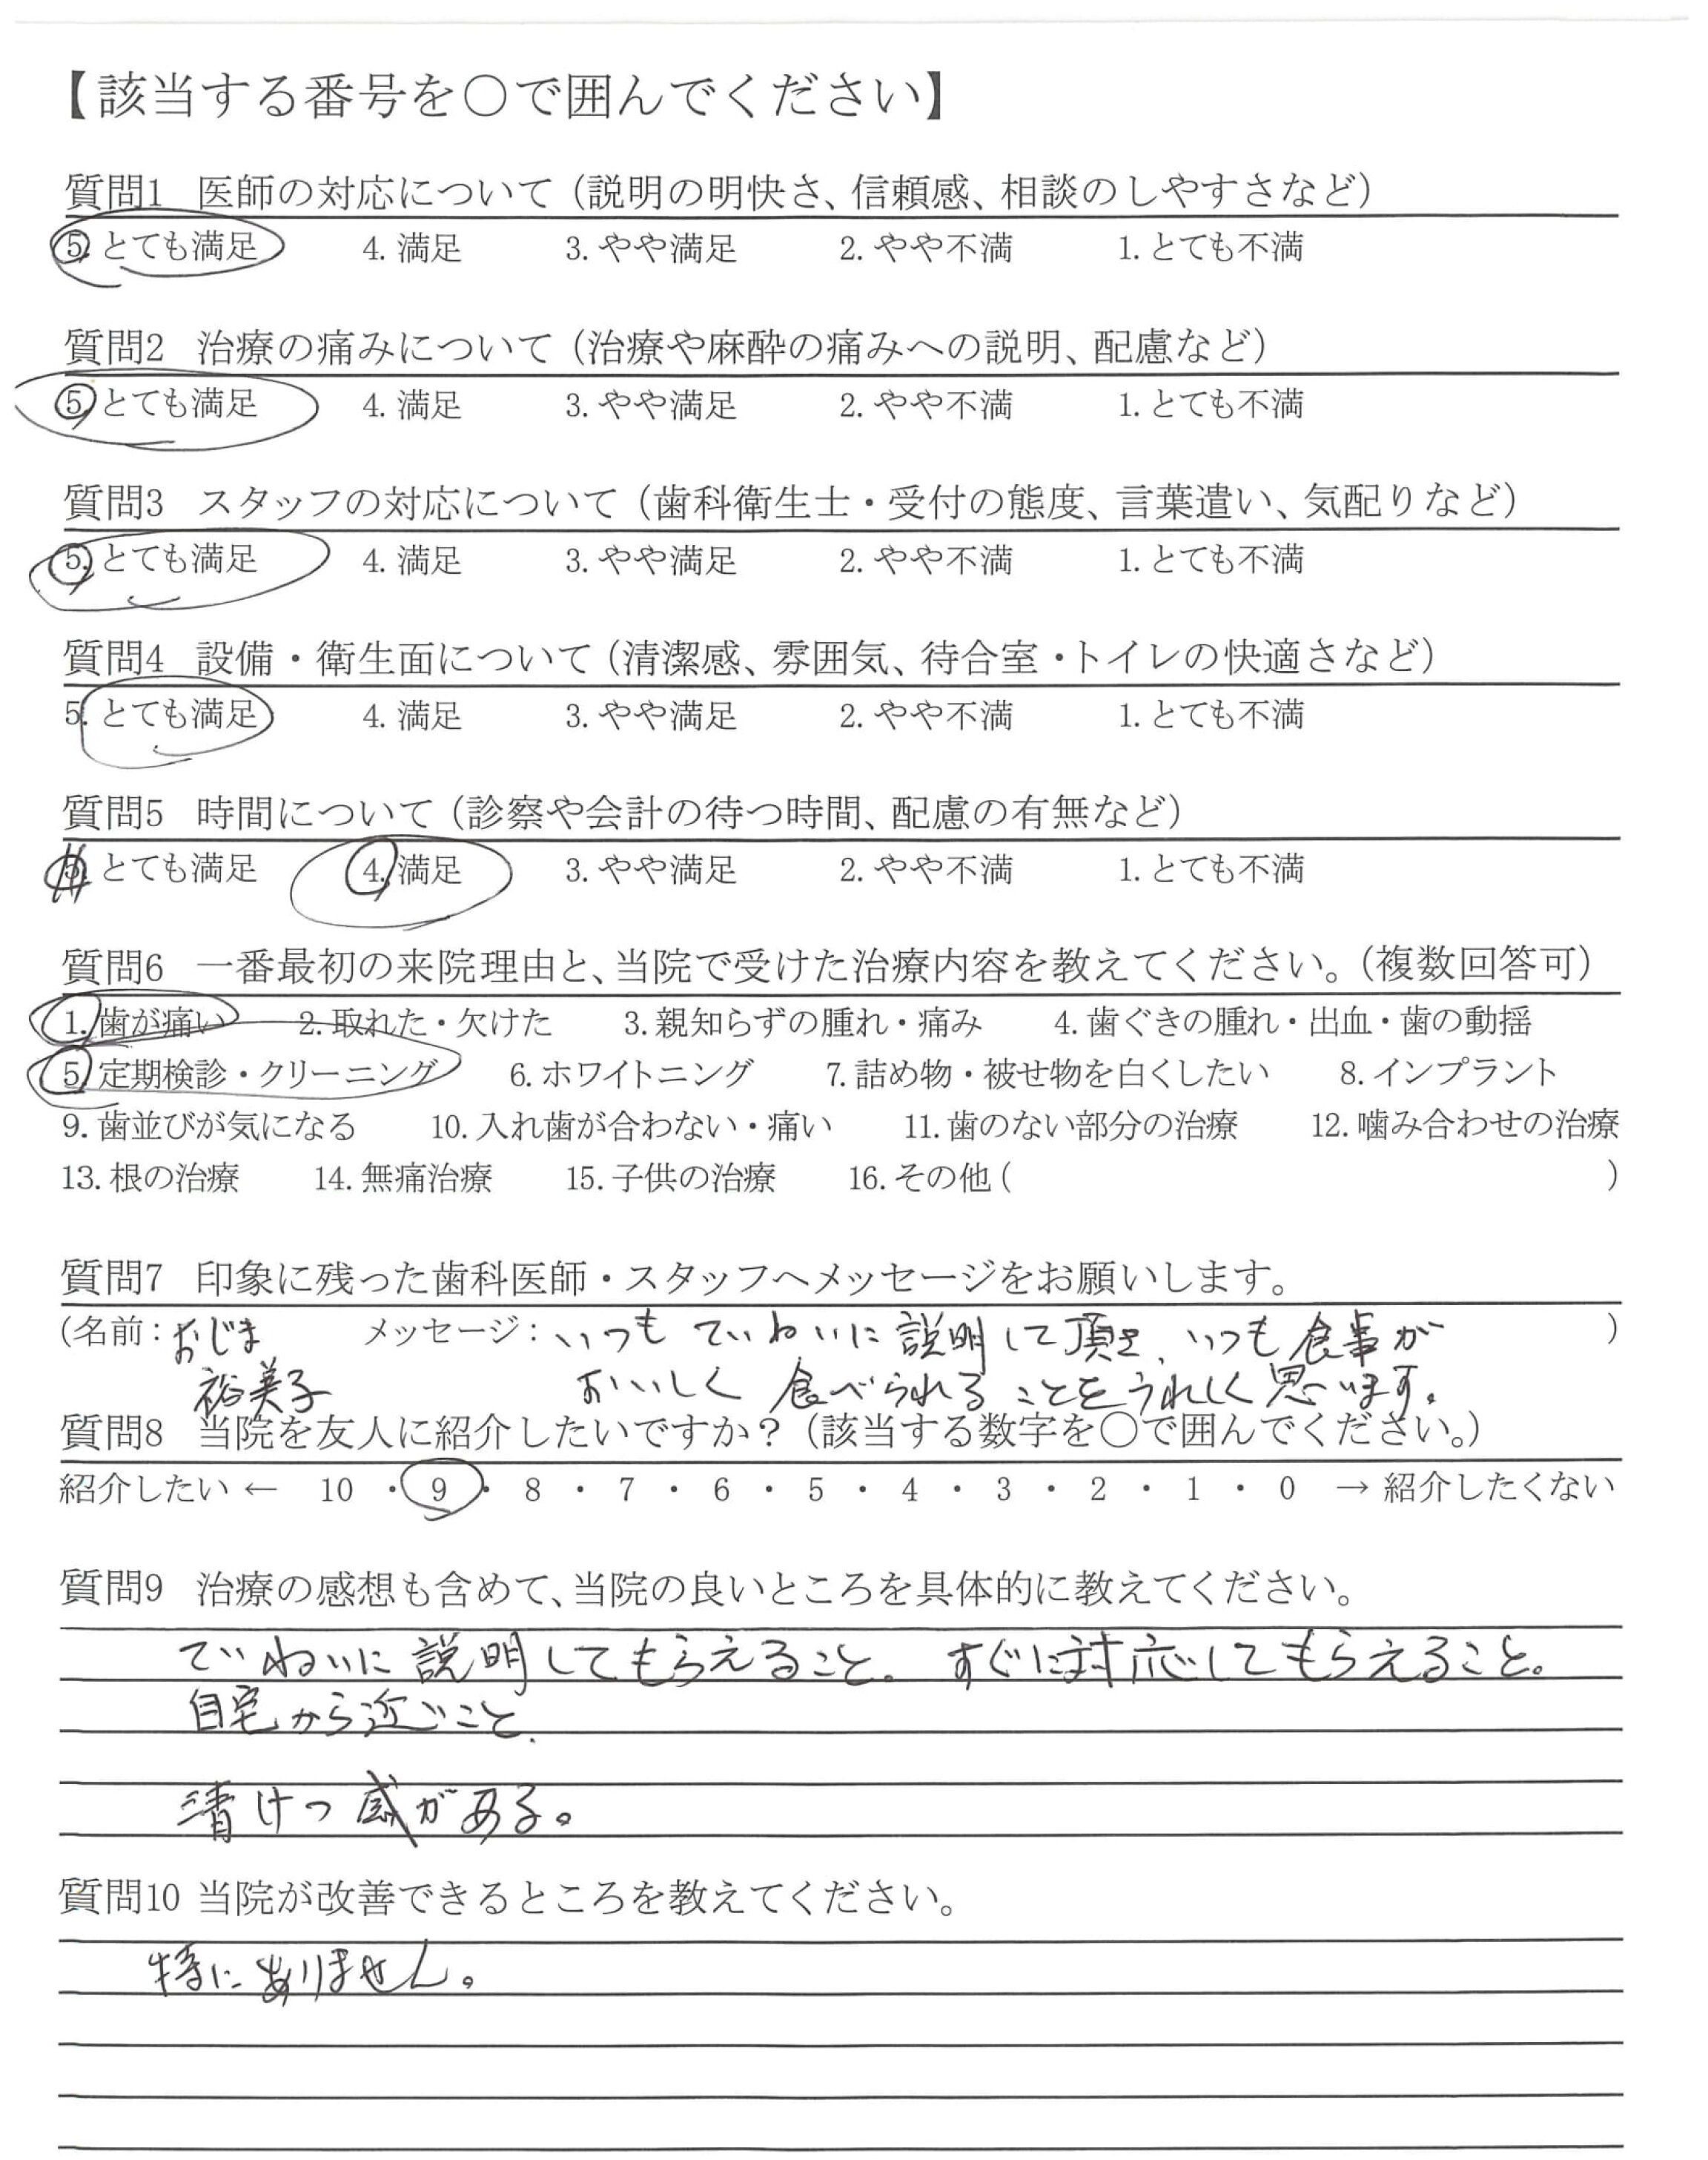 【該当する番号を○で囲んでください】
質問1 医師の対応について（説明の明快さ、信頼感、相談のしやすさなど）
5. とても満足 4. 満足 3. やや満足 2. やや不満 1. とても不満
質問2 治療の痛みについて（治療や麻酔の痛みへの説明、配慮など）
5. とても満足 4. 満足 3. やや満足 2. やや不満 1. とても不満
質問3 スタッフの対応について（歯科衛生士・受付の態度、言葉遣い、気配りなど）
5. とても満足 4. 満足 3. やや満足 2. やや不満 1. とても不満
質問4 設備・衛生面について（清潔感、雰囲気、待合室・トイレの快適さなど）
5. とても満足 4. 満足 3. やや満足 2. やや不満 1. とても不満
質問5 時間について（診察や会計の待つ時間、配慮の有無など）
5. とても満足 4. 満足 3. やや満足 2. やや不満 1. とても不満
質問6 一番最初の来院理由と、当院で受けた治療内容を教えてください。（複数回答可）
1. 歯が痛い 2. 取れた・欠けた 3. 親知らずの腫れ・痛み 4. 歯ぐきの腫れ・出血・歯の動揺
5. 定期検診・クリーニング 6. ホワイトニング 7. 詰め物・被せ物を白くしたい 8. インプラント
9. 歯並びが気になる 10. 入れ歯が合わない・痛い 11. 歯のない部分の治療 12. 噛み合わせの治療
13. 根の治療 14. 無痛治療 15. 子供の治療 16. その他（ ）
質問7 印象に残った歯科医師・スタッフへメッセージをお願いします。
（名前：おじま メッセージ：いつもていねいに説明して頂き、いつも食事が ）
裕美子 おいしく食べられることをうれしく思います。
質問8 当院を友人に紹介したいですか？（該当する数字を○で囲んでください。）
紹介したい ← 10 ・ 9 ・ 8 ・ 7 ・ 6 ・ 5 ・ 4 ・ 3 ・ 2 ・ 1 ・ 0 → 紹介したくない
質問9 治療の感想も含めて、当院の良いところを具体的に教えてください。
ていねいに説明してもらえること。すぐに対応してもらえること。
自宅から近いこと.
清けつ感がある。
質問10 当院が改善できるところを教えてください。
特にありません。